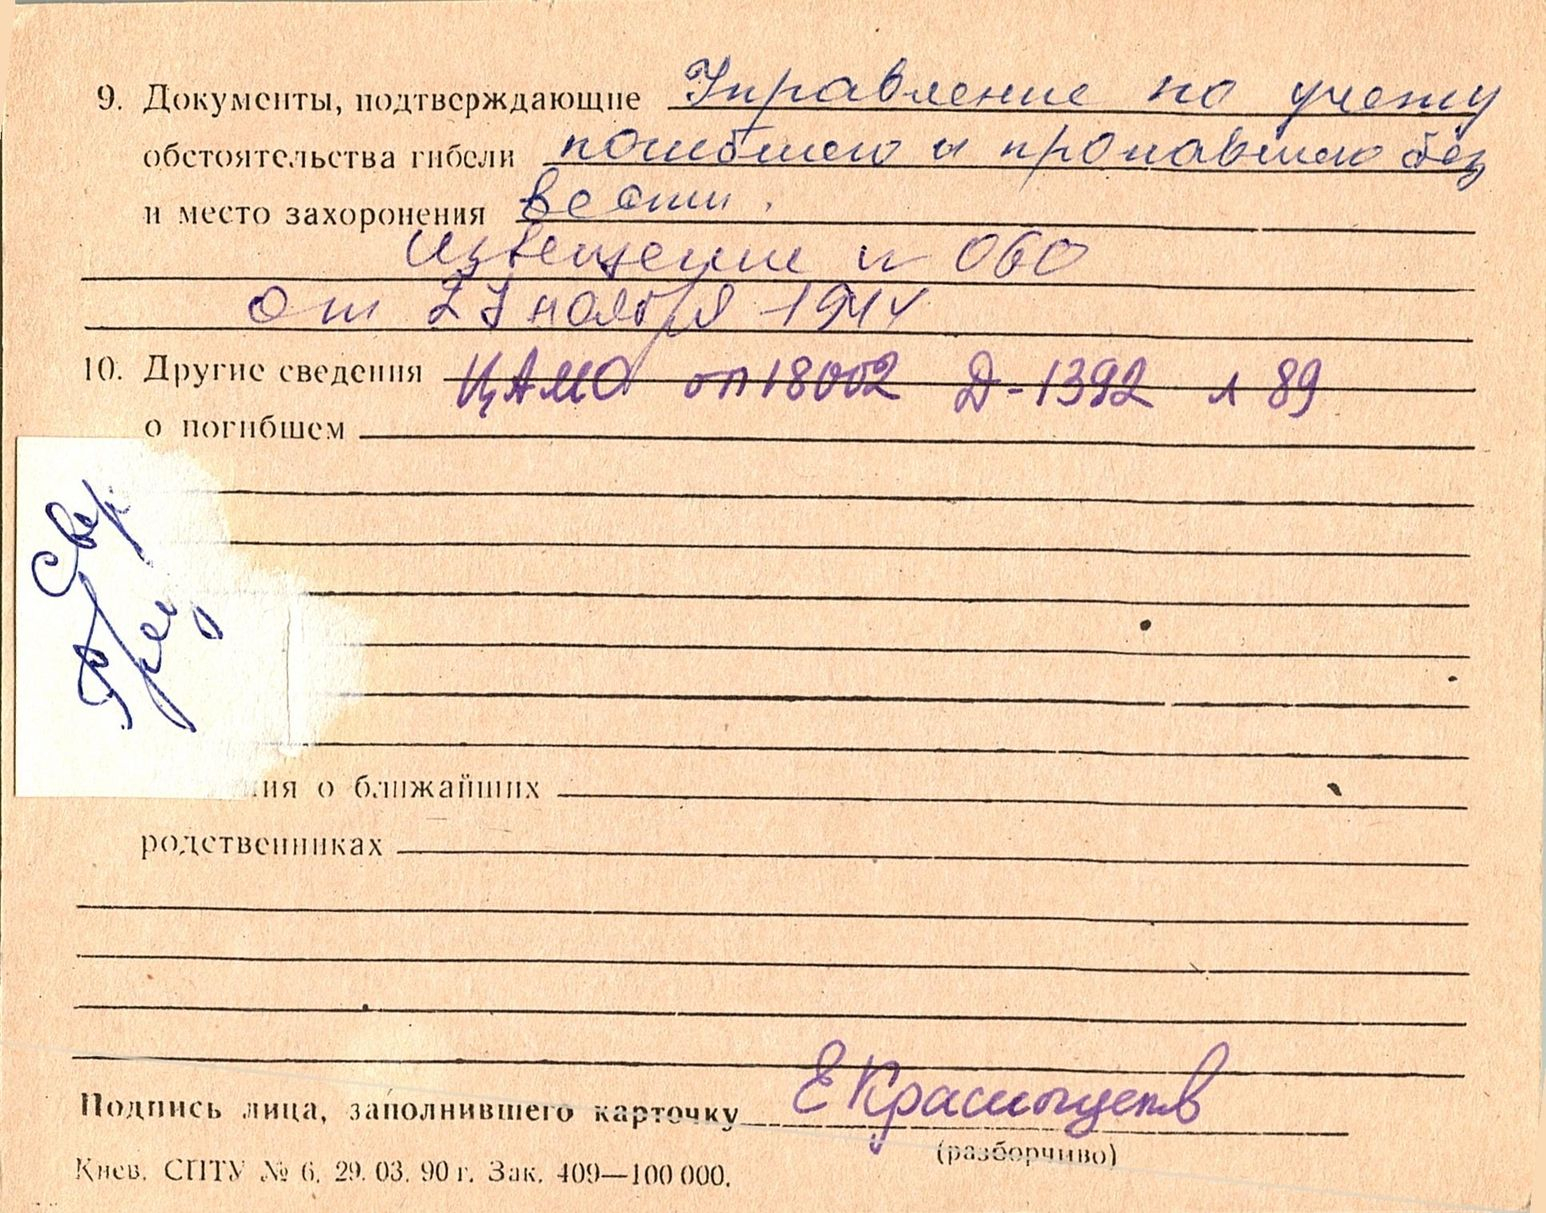 9. Документы, подтверждающие Управление по учету
обстоятельства гибели погибшего и пропавшего без
и место захоронения вести.
извещение n 060
от 27 ноября 1944
10. Другие сведения ЦАМО оп 18002 Д-1392 л 89
о погибшем
Свер
ия о ближайших
родственниках
Подпись лица, заполнившего карточку Е Краснощеков
(разборчиво)
Киев. СПТУ № 6. 29. 03. 90 г. Зак. 409—100 000.